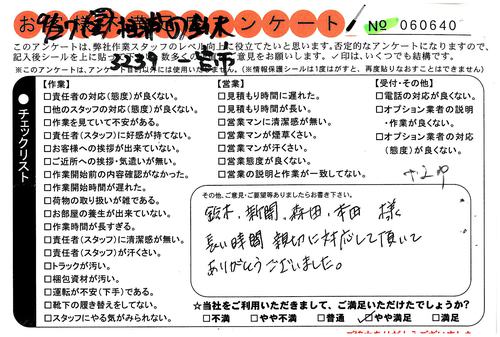 お客様 アンケート！
№ 060640
このアンケートは、弊社作業スタッフのレベル向上に役立てたいと思います。否定的なアンケートになりますので、
記入後シールを上に貼って 意見をお願いします。✓印は、いくつでも結構です。
※このアンケートは、 以外には使用いたしません。(※情報保護シールは1度はがすと、再度貼りなおすことはできません)
チェックリスト
【作業】
□責任者の対応(態度)が良くない。
□他のスタッフの対応(態度)が良くない。
□作業を見ていて不安がある。
□責任者(スタッフ)に好感が持てない。
□お客様への挨拶が出来ていない。
□ご近所への挨拶・気遣いが無い。
□作業開始前の内容確認がなかった。
□作業開始時間が遅れた。
□荷物の取り扱いが雑である。
□お部屋の養生が出来ていない。
□作業時間が長すぎる。
□責任者(スタッフ)に清潔感が無い。
□責任者(スタッフ)が汗くさい。
□トラックが汚い。
□梱包資材が汚い。
□運転が不安(下手)である。
□靴下の履き替えをしてない。
□スタッフにやる気がみられない。
【営業】
□見積もり時間に遅れた。
□見積もり時間が長い。
□営業マンに清潔感が無い。
□営業マンが煙草くさい。
□営業マンが汗くさい。
□営業態度が良くない。
□営業の説明と作業が一致してない。
【受付・その他】
□電話の対応が良くない。
□オプション業者の説明
・作業が良くない。
□オプション業者の対応
(態度)が良くない。
その他、ご意見・ご要望等ありましたらお書き下さい。
鈴木、新聞、森田、幸田 様
長い時間 親切に対応して頂いて
ありがとうございました。
☆当社をご利用いただきまして、ご満足いただけたでしょうか？
□不満 □やや不満 □普通 ☑やや満足 □満足